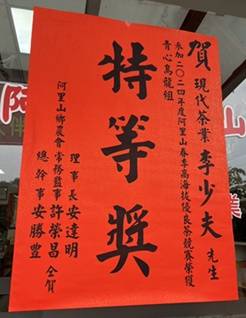 賀 現代茶業 李少夫 先生
參加二〇二四年度阿里山春季高海拔優良茶競賽榮獲
青心烏龍組
特等獎
理事長 安達明
阿里山鄉農會 常務監事 許榮昌 仝賀
總幹事 安勝豐